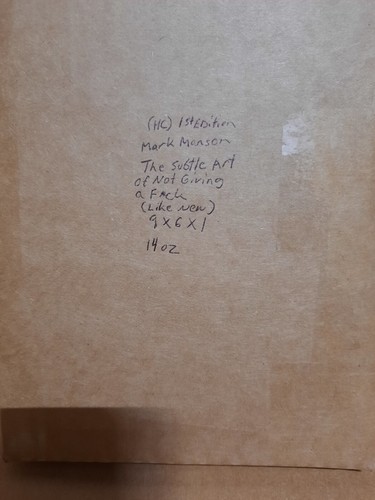 (HC) 1st Edition
Mark Monson
The Subtle Art
of Not Giving
a F*ck
(Like New)
9 x 6 x 1
14 oz